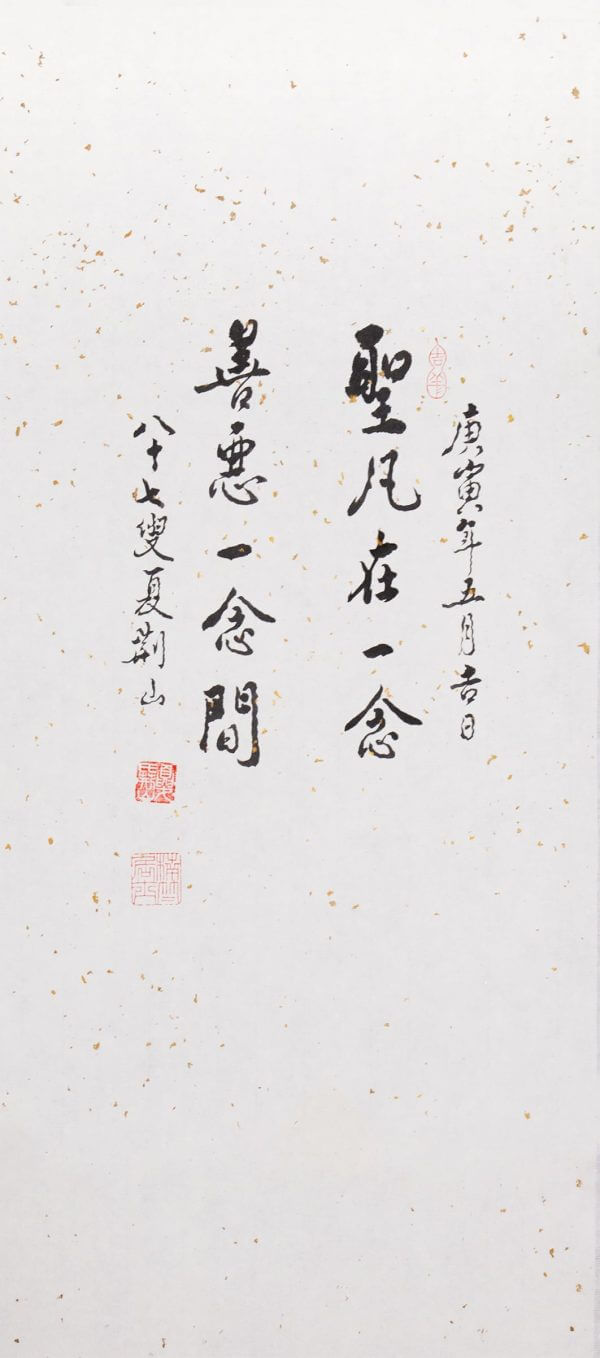 庚寅年五月吉日
聖凡在一念
善惡一念間
八十七叟夏荆山